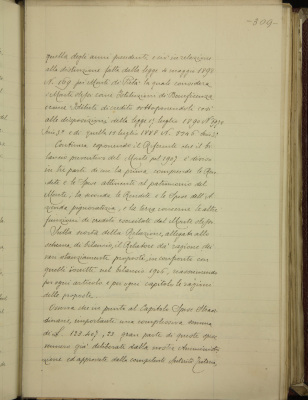 -309-
quella degli anni precedenti, e ciò in relazione
alla distinzione fatta dalla legge 4 maggio 1898
N. 169 pei Monti di Pietà la quale considera
i Monti stessi come Istituzioni di Beneficenza
e come Istituti di credito sottoponendoli così
alle disposizioni della legge 17 luglio 1890 N°
e di quella 15 luglio 1888 N. 5546
Continua esponendo il Riferente che il bi-
lancio preventivo del Monte pel 1907 è diviso
in tre parti di cui la prima comprende le Ren-
dite e le Spese attinenti al patrimonio del
Monte, la seconda le Rendite e le Spese dell'A-
zienda pignoratizia, e la terza concerne le altre
funzioni di credito esercitate dal Monte stesso.
Sulla scorta della Relazione, allegata allo
schema di bilancio, il Relatore dà ragione dei
vari stanziamenti proposti, in confronto con
quelli inscritti nel bilancio 1906, riassumendo
per ogni articolo e per ogni capitolo le ragioni
delle proposte.
Osserva che in punto al Capitolo Spese Straor-
dinarie, importante una complessiva somma
di L. 128.407,23 gran parte di queste spese
vennero già deliberate dalla nostra Amministra-
zione ed approvate dalla competente Autorità Tutoria,